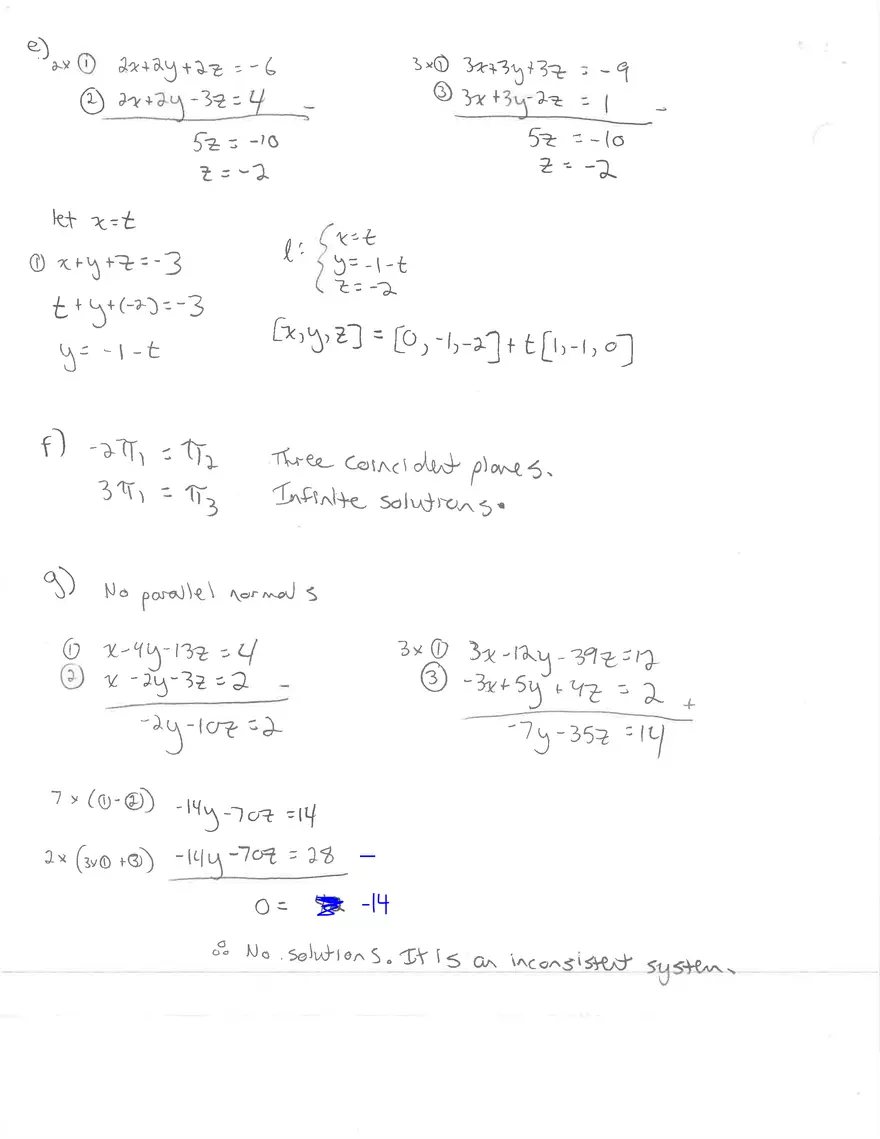 e)
2x ① 2x+2y+2z = -6
② 2x+2y-3z = 4 -
5z = -10
z = -2
3x① 3x+3y+3z = -9
③ 3x+3y-2z = 1 -
5z = -10
z = -2
let x=t
① x+y+z=-3
t+y+(-2)=-3
y= -1-t
l: { x=t
y= -1-t
z= -2
[x,y,z] = [0,-1,-2]+t[1,-1,0]
f) -2π₁ = π₂
3π₁ = π₃
Three coincident planes.
Infinite solutions.
g) No parallel normals
① x-4y-13z = 4
② x-2y-3z = 2 -
-2y-10z = 2
3x ① 3x-12y-39z=12
③ -3x+5y+4z = 2 +
-7y-35z = 14
7x(①-②) -14y-70z = 14
2x(3x①+③) -14y-70z = 28 -
0= -14
∴ No solutions. It is an inconsistent system.